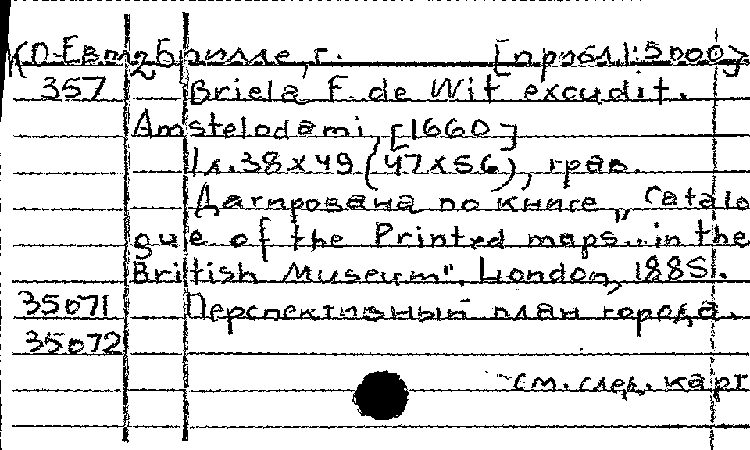 КО-Евт2Брилле, г. [прибл.1:5000]
357 Briela F. de Wit excudit.
Amstelodami, [1660]
1 л. 38х49 (47х56), грав.
Датирована по книге „Catalo
gue of the Printed maps... in the
British Museum". London, 1885.
35071 Перспективный план города.
35072
См. след. карт